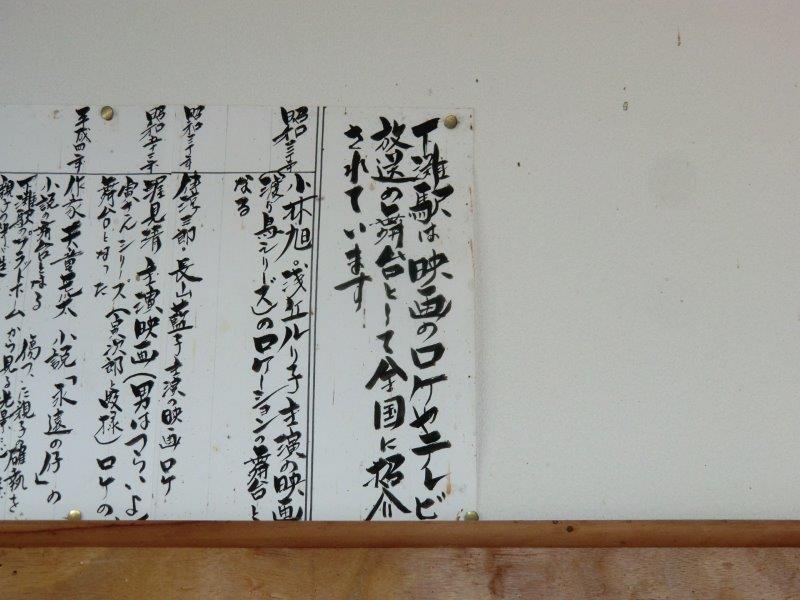 下灘駅は映画のロケやテレビ
放送の舞台として全国に招介
されています
昭和三年 小林旭。浅丘ルリ子主演の映画
(渡り鳥シリーズ)のロケーションの舞台と
なる
昭和 年 三郎・長山藍子主演の映画ロケ
昭和五十二年 渥見清主演映画(男はつらいよ
寅さんシリーズ(寅次郎と殿様)ロケの、
舞台となった
平成四年 作家 天童荒太 小説「永遠の仔」の
小説の舞台となる
下灘駅のプラットホームから見る光景